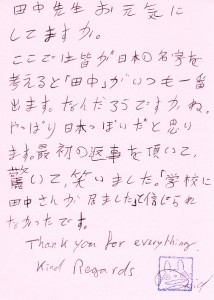 田中先生 お元気に
してますか。
ここでは皆が日本の名字を
考えると「田中」がいつも一番
出ます。なんだろうですか、ね。
やっぱり日本っぽいだと思い
ます。最初の返事を頂いて、
驚いて、笑いました。「学校に
田中さんが居ました」と信じられ
なかったです。
Thank you for everything.
Kind Regards